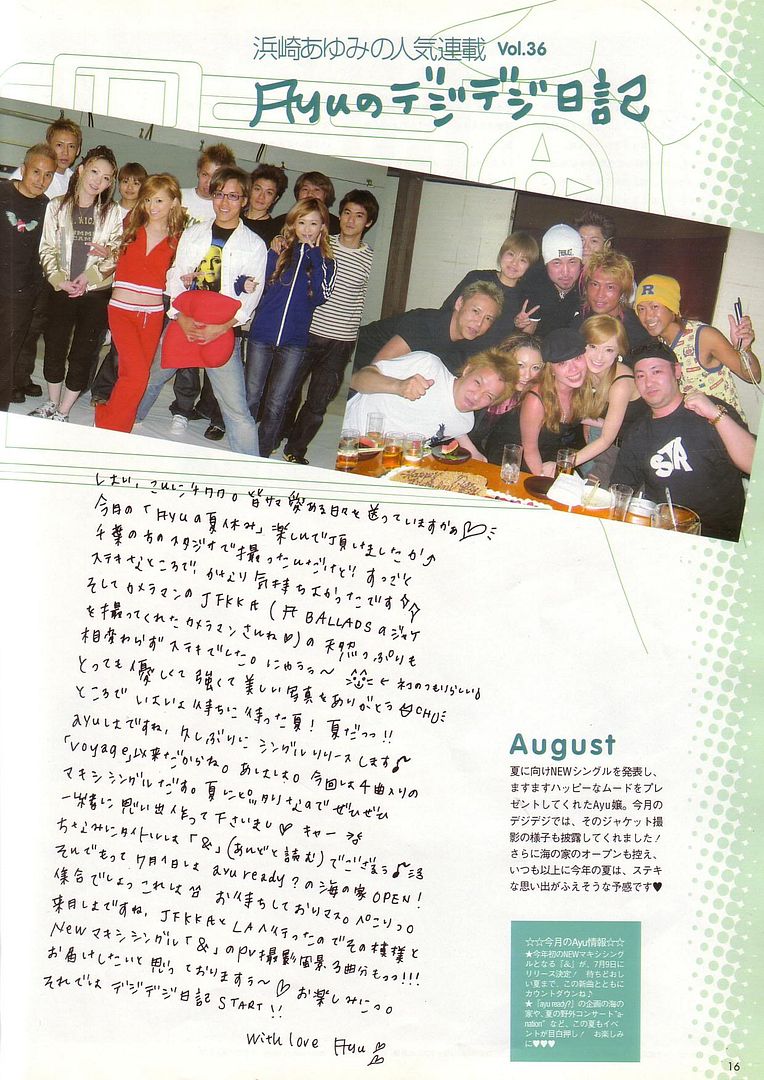 浜崎あゆみの人気連載 Vol.36
Ayuのデジデジ日記
はい、こんにチワワ。皆サマ愛ある日々を送っていますかぁ♡
今月の「Ayuの夏休み」楽しんで頂けましたか↑
千葉の方のスタジオで撮ったんだけど!すっごく
ステキなところで かなり気持ちよかったです
そしてカメラマンのJFKK氏(A BALLADSのジャケ
を撮ってくれたカメラマンさんね♡)の天然っぷりも
相変わらずステキでした。にゃうぅ〜 ←ネコのつもりらしい
とっても優しくて強くて美しい写真をありがとうCHU
ところでいよいよ待ちに待った夏!夏だっっ!!
ayuはですね、久しぶりにシングルリリースします♪
「Voyage」以来だからね。あはは。今回は4曲入りの
マキシシングルだす。夏にピッタリなのでぜひぜひ
一緒に思い出作って下さいまし♡ キャー
ちなみにタイトルは「&」(あんどと読む)でござる♪
そんでもって7月1日は ayu ready?の海の家OPEN!
集合でしょっこれは お待ちしておりマス。ペこりっ。
来月はですね、JFKK氏とLAへ行ったのでその模様と
Newマキシシングル「&」のPV撮影風景3曲分もっっ!!!
お届けしたいと思っておりますぅ〜♡お楽しみにっ。
それでは デジデジ日記 START!!
with love Ayu
August
夏に向けNEWシングルを発表し、
ますますハッピーなムードをプレ
ゼントしてくれたAyu嬢。今月の
デジデジでは、そのジャケット撮
影の様子も披露してくれました!
さらに海の家のオープンも控え、
いつも以上に今年の夏は、ステキ
な思い出がふえそうな予感です♥
☆☆今月のAyu情報☆☆
★今年初のNEWマキシシング
ルとなる『&』が、7月9日に
リリース決定! 待ちどおし
い夏まで、この新曲とともに
カウントダウンね♪
★『ayu ready?』の企画の海の
家や、夏の野外コンサート“a-
nation”など、この夏もイベ
ントが目白押し! お楽しみ
に♥♥♥
16